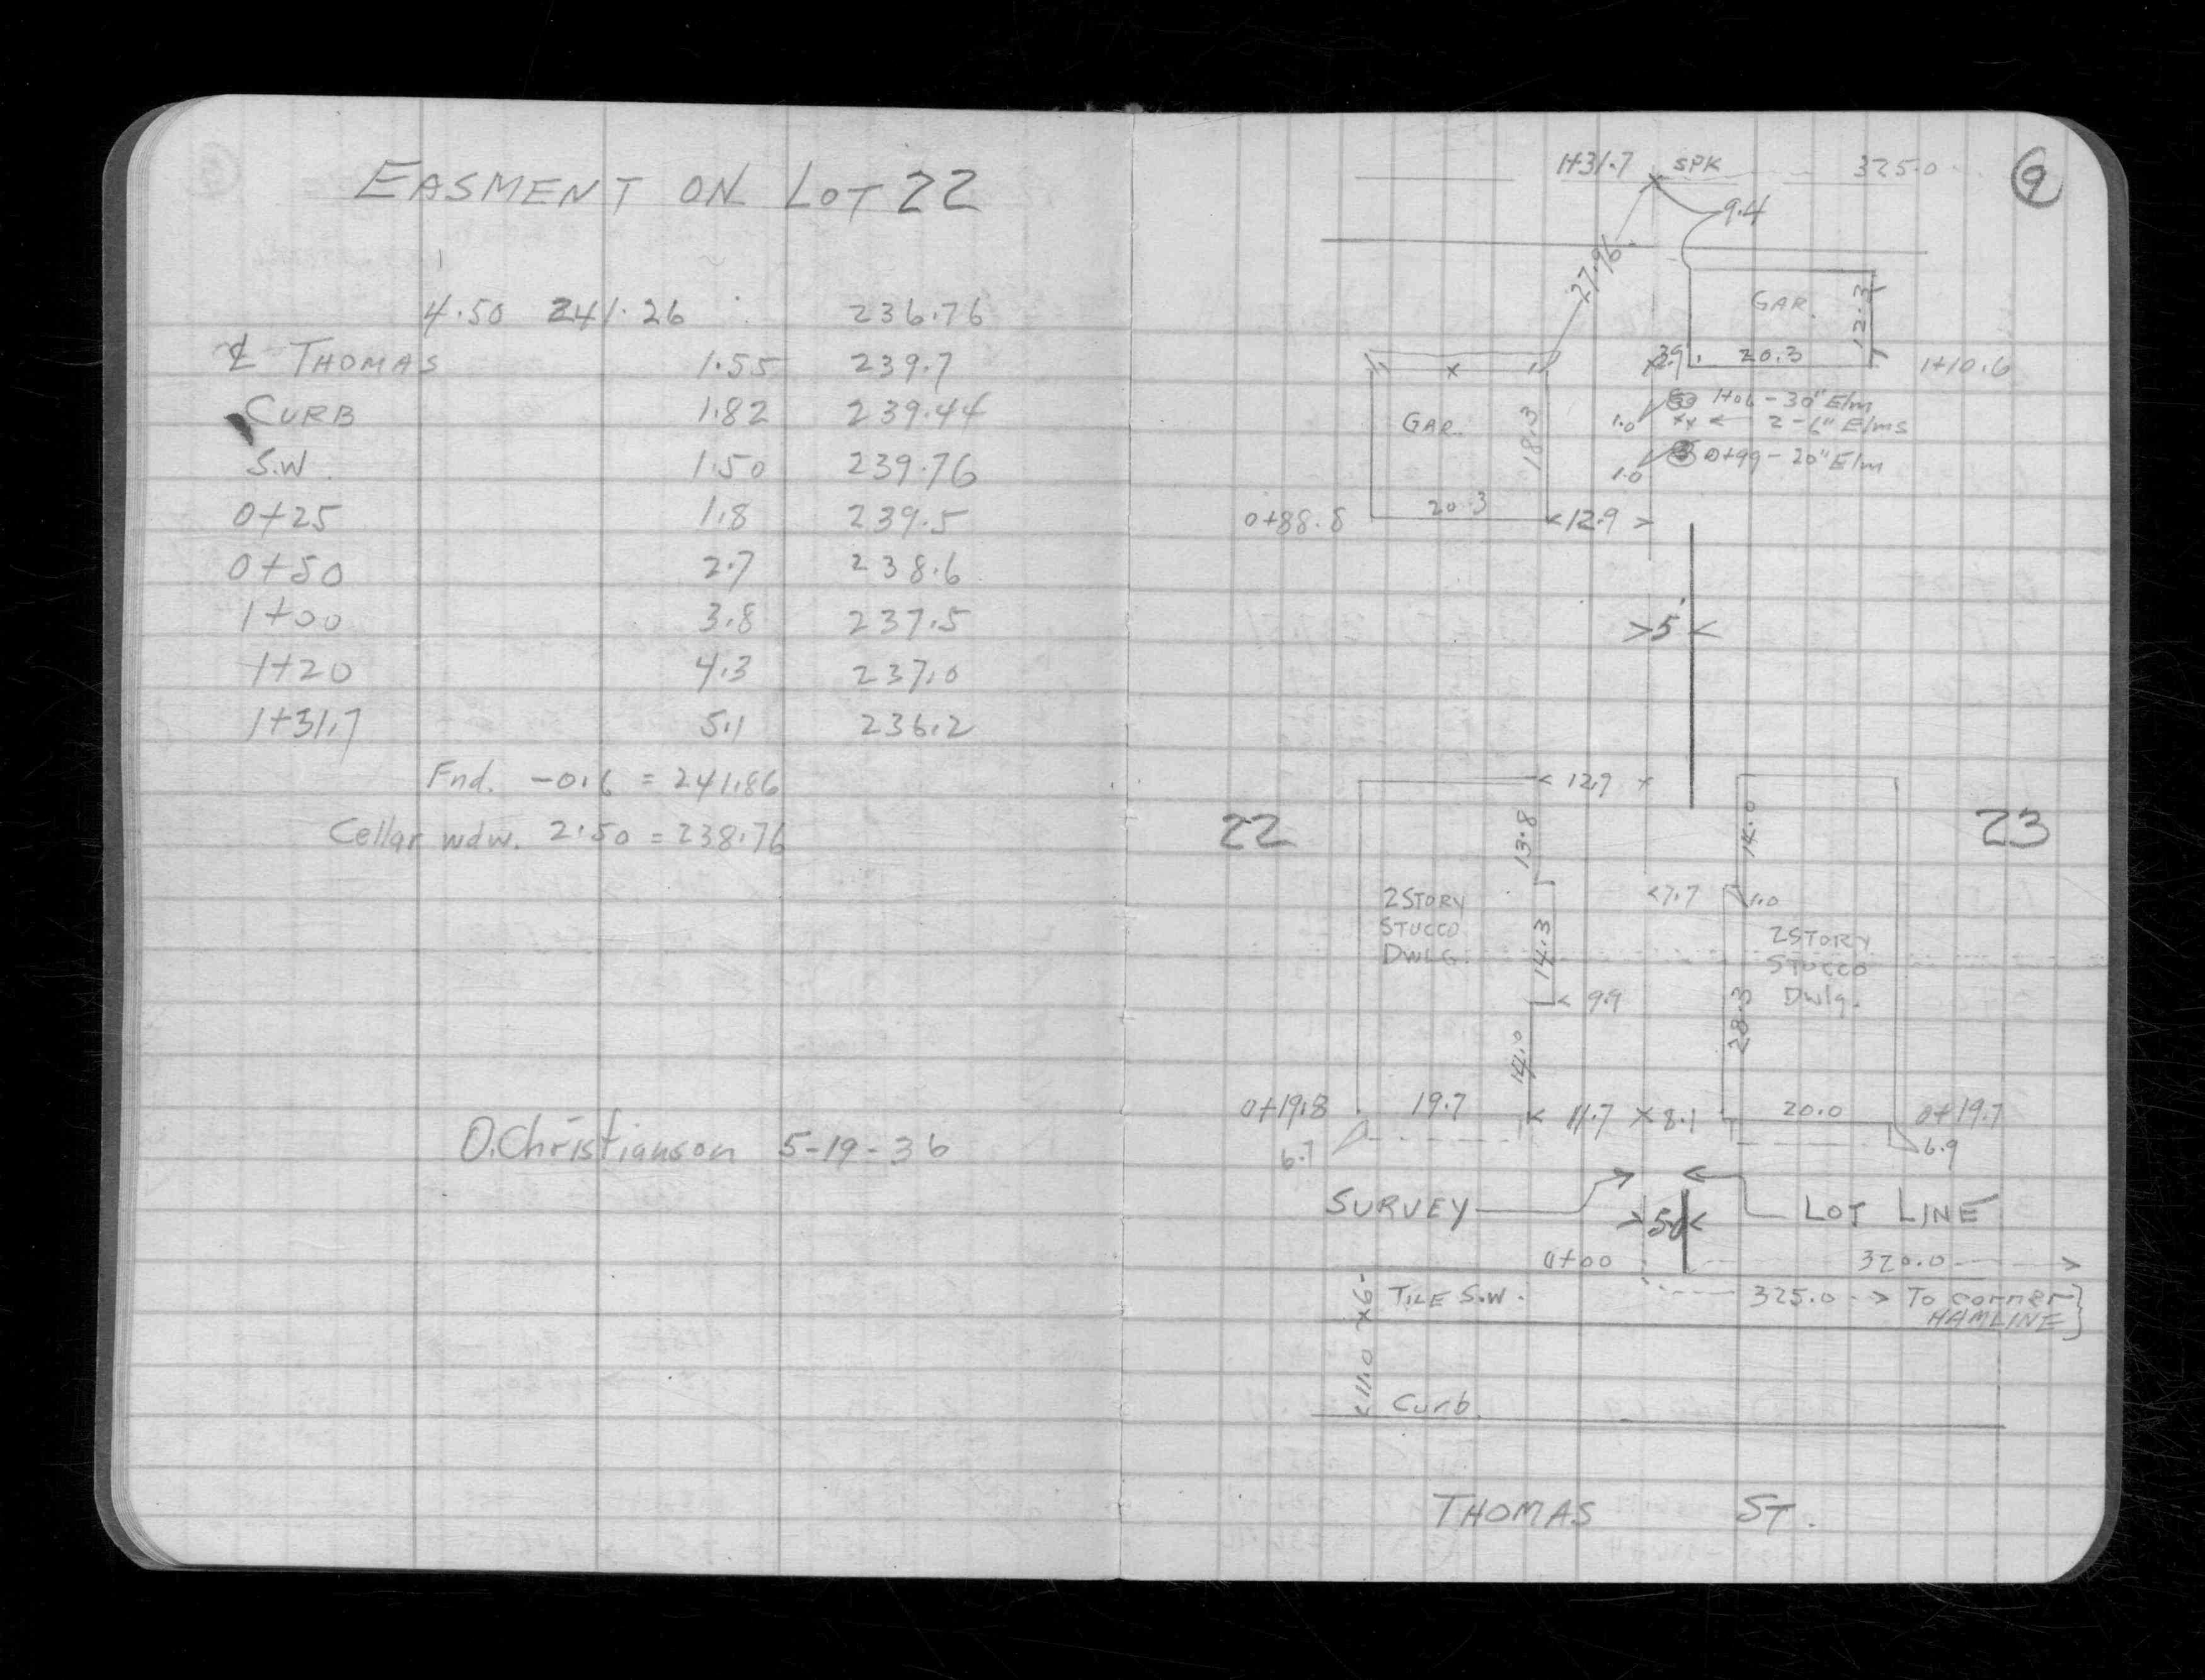 EASMENT ON LOT 22
4.50 241.26 236.76
℄ THOMAS 1.55 239.7
CURB 1.82 239.44
S.W. 1.50 239.76
0+25 1.8 239.5
0+50 2.7 238.6
1+00 3.8 237.5
1+20 4.3 237.0
1+31.7 5.1 236.2
Fnd. -0.6 = 241.86
Cellar wdw. 2.50 = 238.76
O. Christianson 5-19-36
9
1+31.7 SPK 325.0
9.4
27.96
GAR. 12.3
3.9 20.3 1+10.6
1+06 - 30" Elm
1.0 xx ← 2 - 6" Elms
0+99 - 20" Elm
1.0
GAR. 18.3
20.3
0+88.8 <12.9>
>5<
< 12.7
22 13.8 14.0 23
<7.7 1.0
2 STORY
STUCCO
DWLG.
14.3
2 STORY
STUCCO
Dwlg.
< 9.9
28.3
14.0
0+19.8 19.7 < 11.7 × 8.1 20.0 0+19.7
6.7 6.9
SURVEY LOT LINE
>5.0<
0+00 320.0 >
TILE S.W. 325.0 -> To corner
HAMLINE
<11.0 × 6
Curb
THOMAS ST.